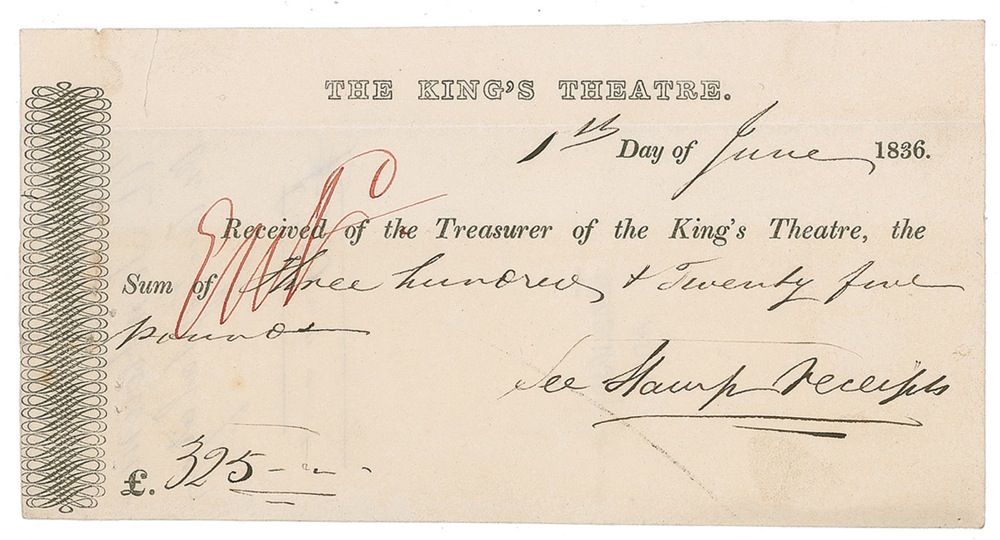 THE KING'S THEATRE.
1th Day of June 1836.
Received of the Treasurer of the King's Theatre, the
Sum of Three hundred & Twenty five
pounds
See Stamp receipts
£. 325